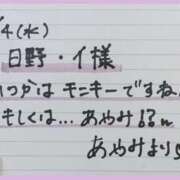 4(水)
日野・イ様
いつかは モニキーですね
もしくは…あやみ!?w
あやみより